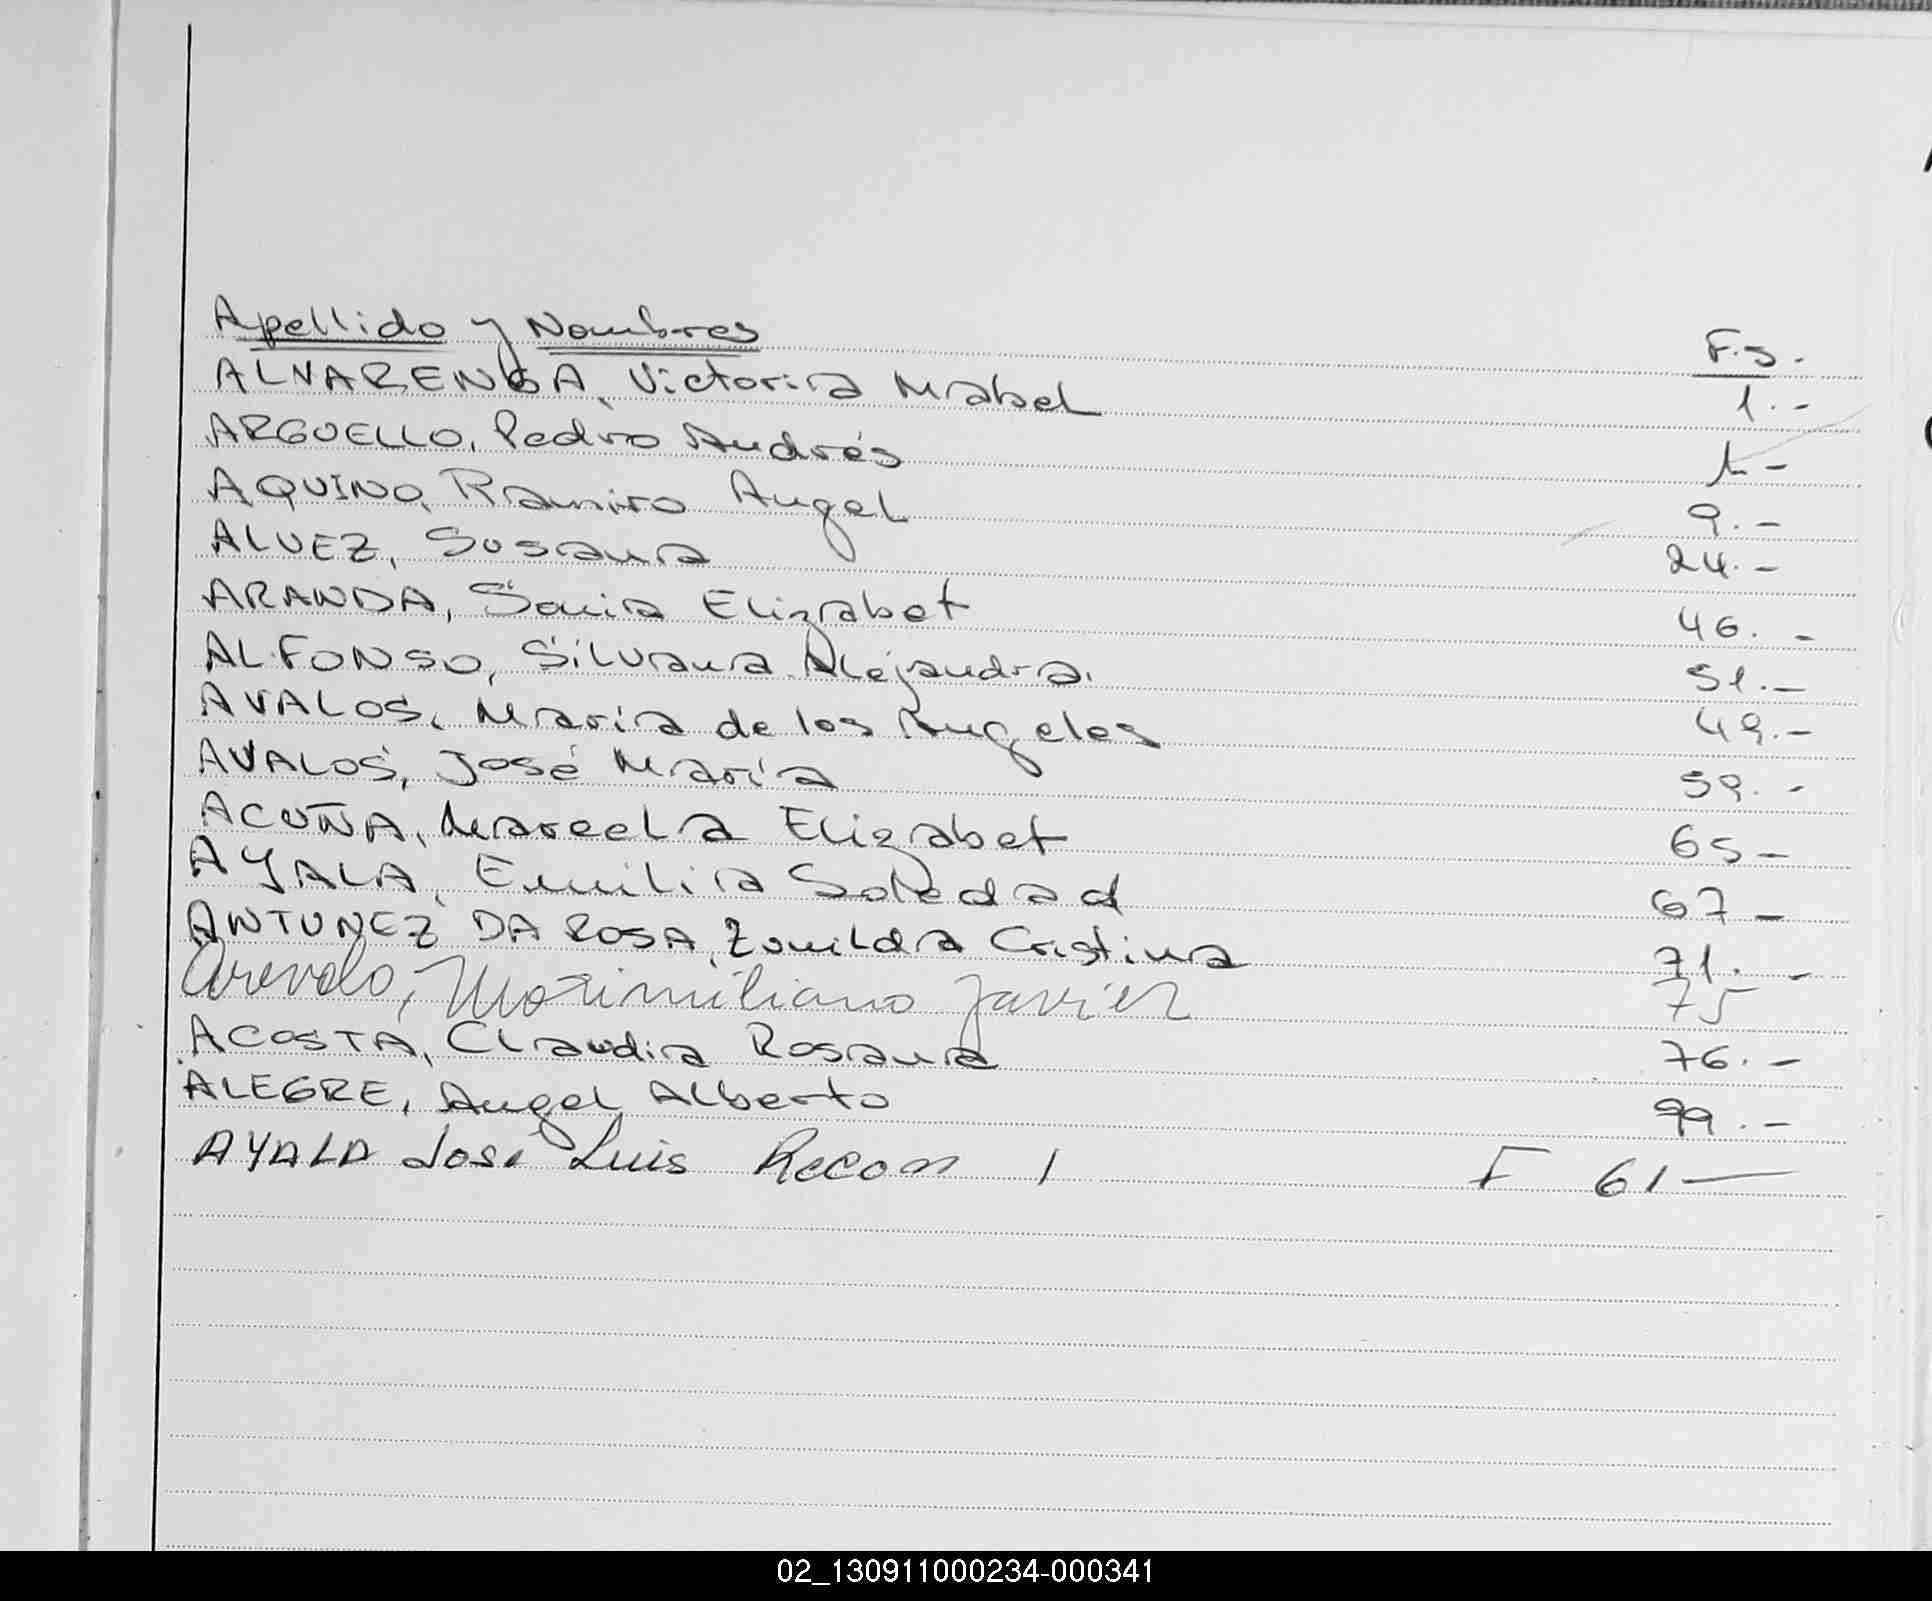 Apellido y Nombres F.s.
ALVARENGA, Victoria Mabel 1.-
ARGUELLO, Pedro Andrés 1-
AQUINO, Ramiro Angel 9.-
ALVEZ, Susana 24.-
ARANDA, Sonia Elizabet 46.-
ALFONSO, Silvana Alejandra. 51.-
AVALOS, María de los Angeles 49.-
AVALOS, José María 59.-
ACUÑA, Marcela Elizabet 65-
AYALA, Emilia Soledad 67-
ANTUNEZ DA ROSA, Zonilda Cristina 71.-
Arevalo, Maximiliano Javier 75
ACOSTA, Claudia Rosana 76.-
ALEGRE, Angel Alberto 99.-
AYALA José Luis Recon 1 F 61-
02_130911000234-000341